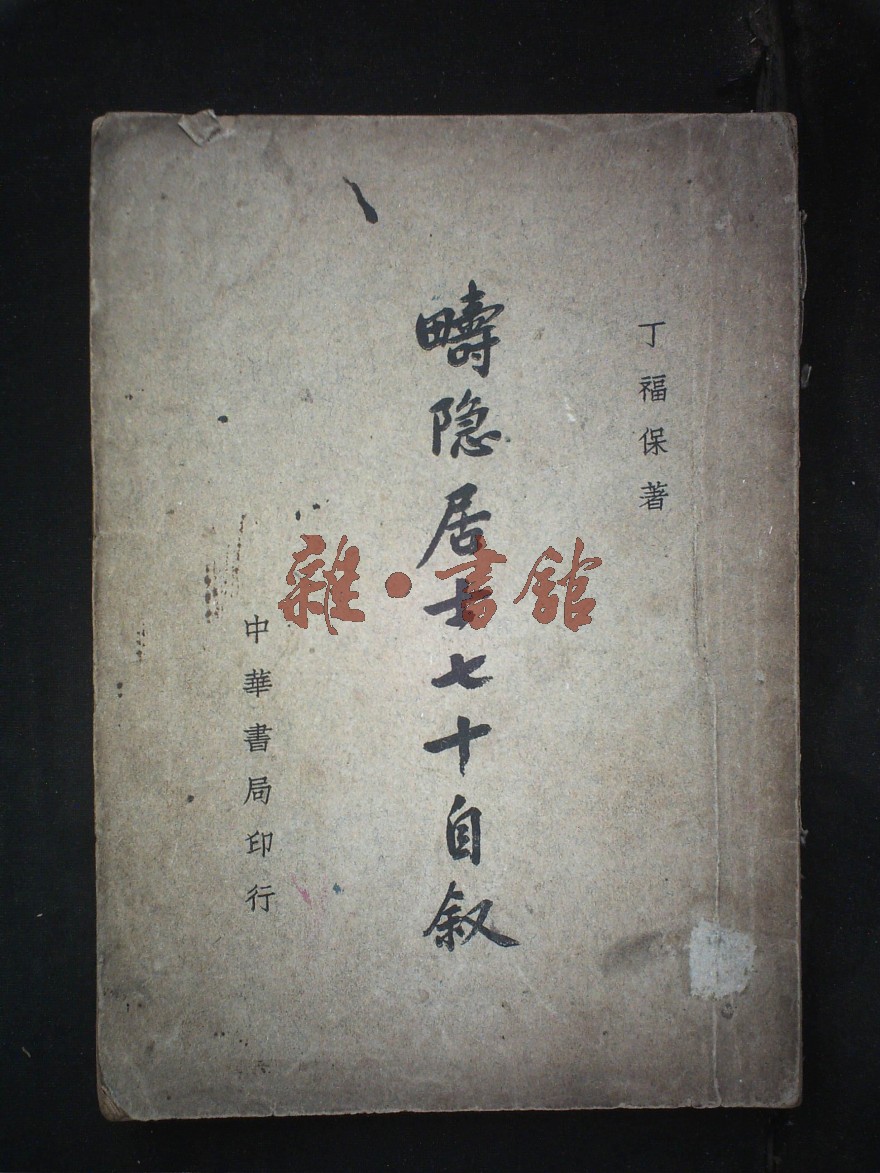 丁福保著
疇隐居士七十自叙
中華書局印行
雜·書館